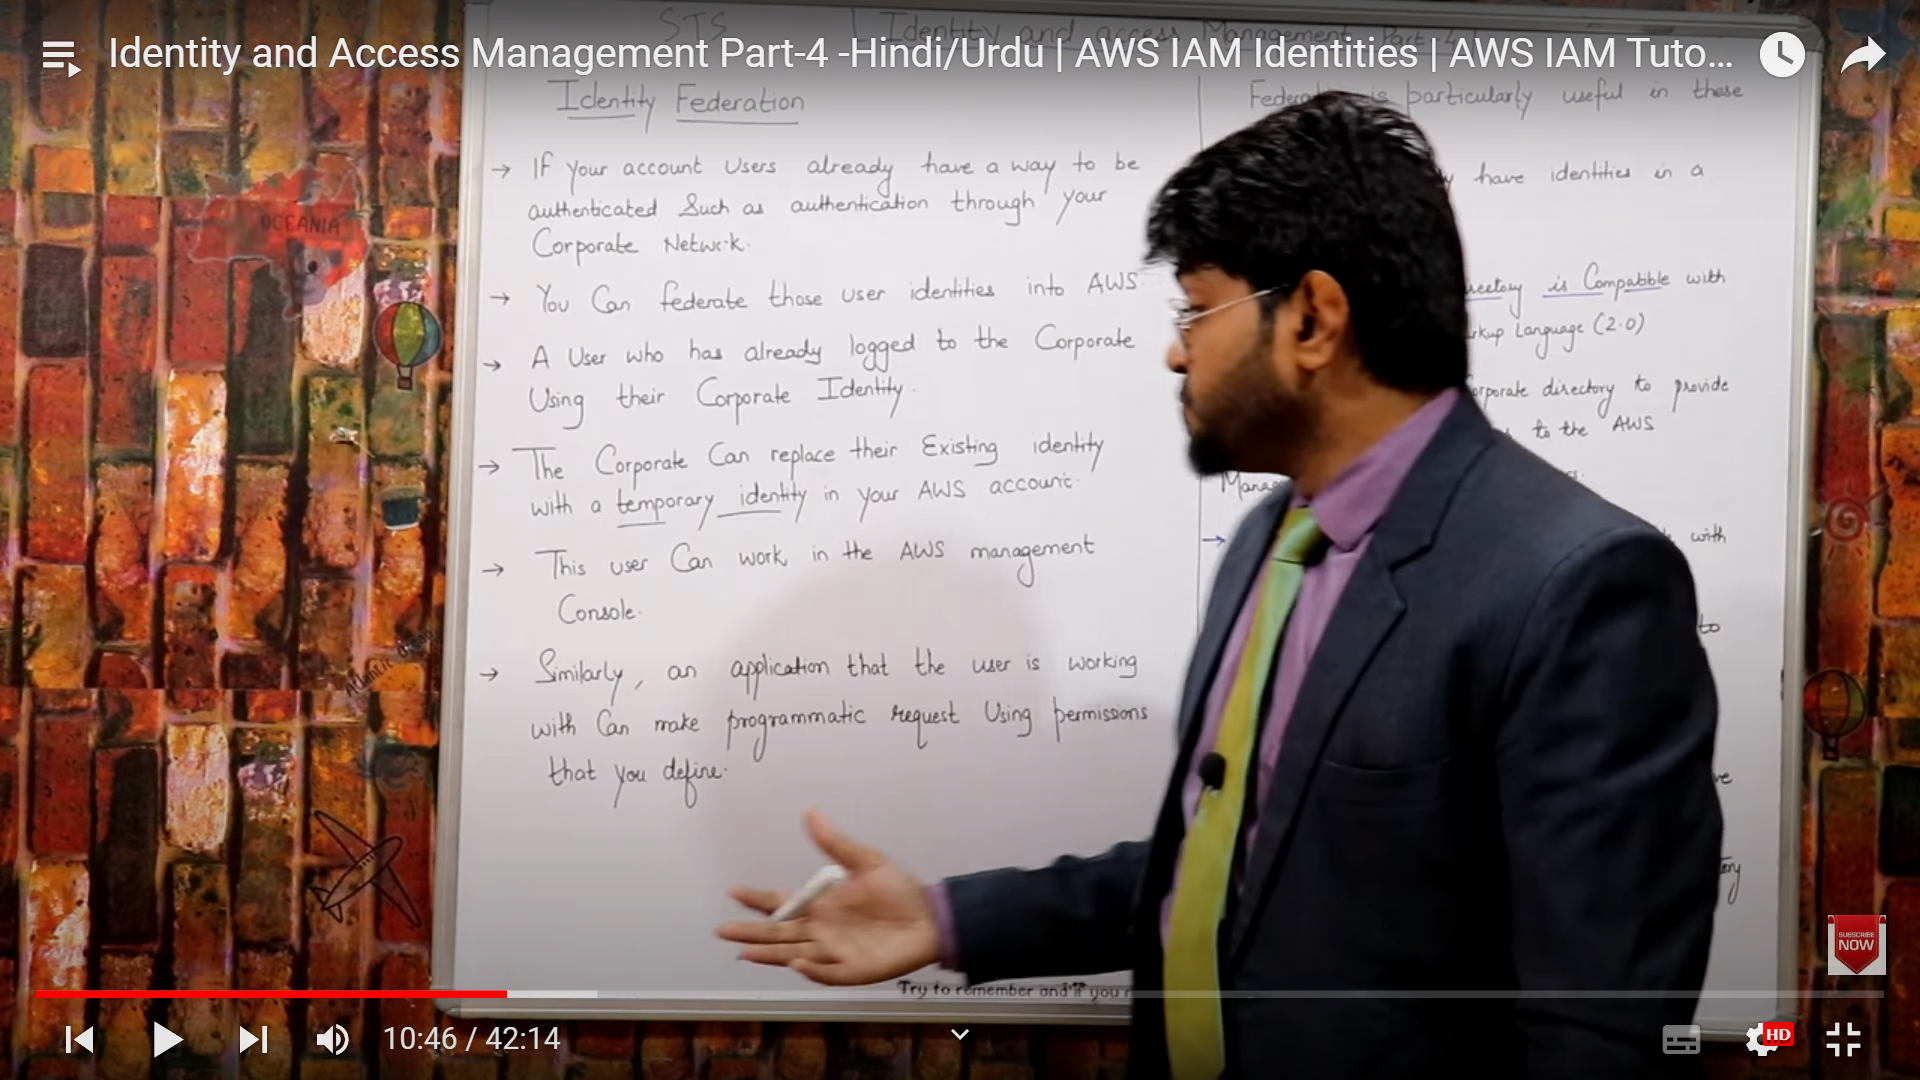 STS | Identity and access Management Part-4
Identity and Access Management Part-4 -Hindi/Urdu | AWS IAM Identities | AWS IAM Tuto...
Identity Federation
→ If your account Users already have a way to be
authenticated Such as authentication through your
Corporate Network.
→ You Can federate those user identities into AWS.
→ A User who has already logged to the Corporate
Using their Corporate Identity.
→ The Corporate Can replace their Existing identity
with a temporary identity in your AWS account.
→ This user Can work in the AWS management
Console.
→ Similarly, an application that the user is working
with Can make programmatic request Using permissions
that you define.
is particularly useful in these
have identities in a
is Compatible with
Language (2.0)
directory to provide
to the AWS
→ with
to
OCEANIA
Atlantic
SUBSCRIBE
NOW
Try to remember and if you
10:46 / 42:14
HD